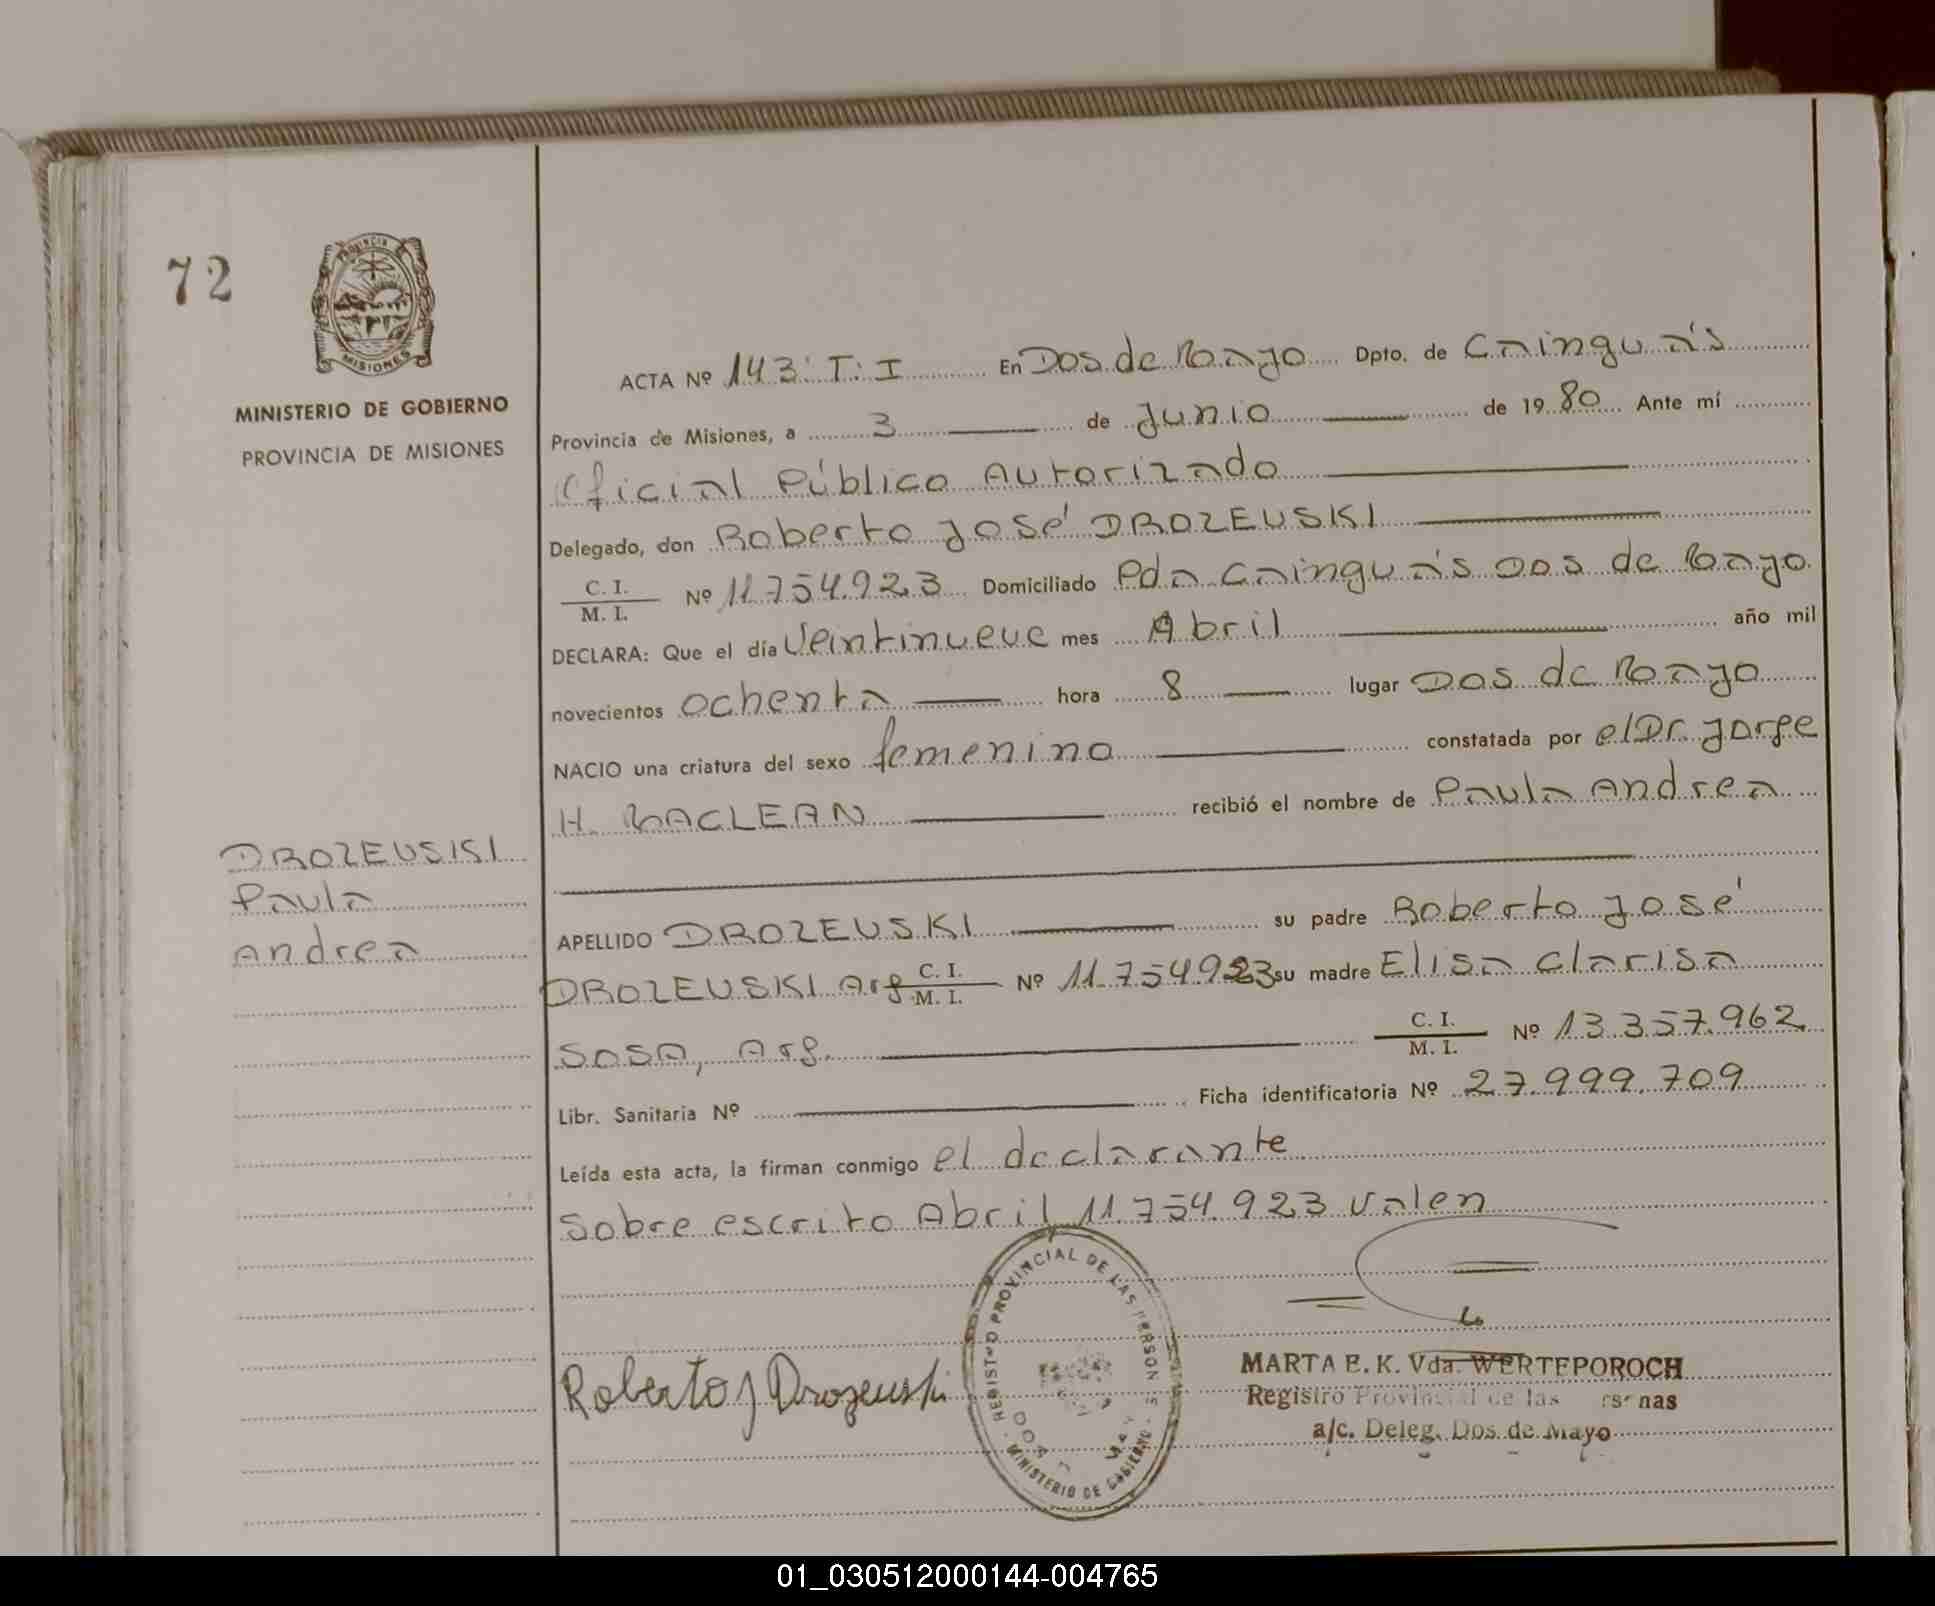 72
PROVINCIA
MISIONES
MINISTERIO DE GOBIERNO
PROVINCIA DE MISIONES
ACTA Nº 143 T: I En Dos de Mayo Dpto. de Cainguás
Provincia de Misiones, a 3 de Junio de 19 80 Ante mí
Oficial Público Autorizado
Delegado, don Roberto José DROZEUSKI
C. I.
M. I. Nº 11.754.923 Domiciliado Pda Cainguás Dos de Mayo
DECLARA: Que el día Veintinueve mes Abril año mil
novecientos ochenta hora 8 lugar Dos de Mayo
NACIO una criatura del sexo femenino constatada por el Dr. Jorge
H. MACLEAN recibió el nombre de Paula Andrea
DROZEUSKI
Paula
Andrea
APELLIDO DROZEUSKI su padre Roberto José
DROZEUSKI Arg C. I.
M. I. Nº 11.754.923 su madre Elisa Clarisa
SOSA, Arg. C. I.
M. I. Nº 13.357.962
Libr. Sanitaria Nº Ficha identificatoria Nº 27.999.709
Leída esta acta, la firman conmigo el declarante
Sobre escrito Abril 11.754.923 valen
REGISTRO PROVINCIAL DE LAS PERSONAS
MINISTERIO DE GOBIERNO
Roberto J Drozeuski
MARTA E. K. Vda. WERTEPOROCH
Registro Provincial de las rsonas
a/c. Deleg. Dos de Mayo
01_030512000144-004765